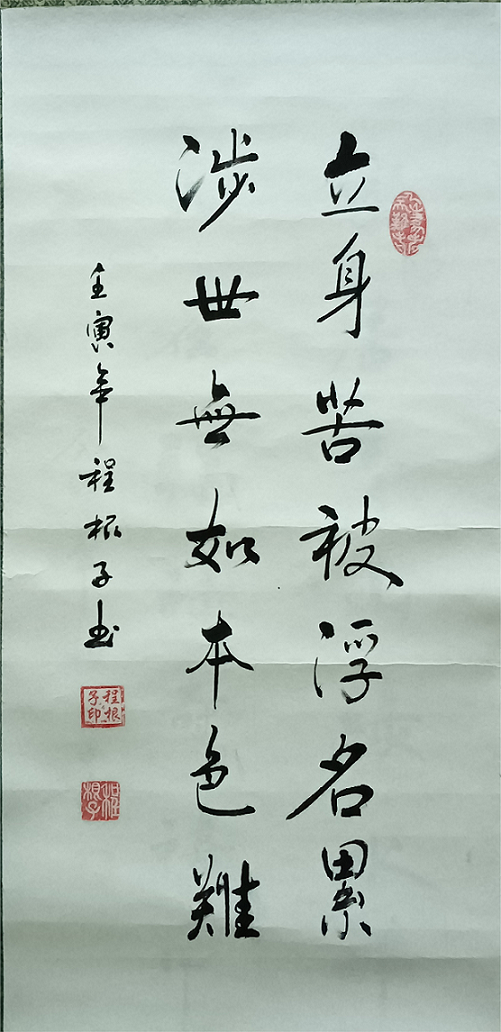 立身苦被浮名累
涉世無如本色難
壬寅年程根子书
程根
子印
程根子